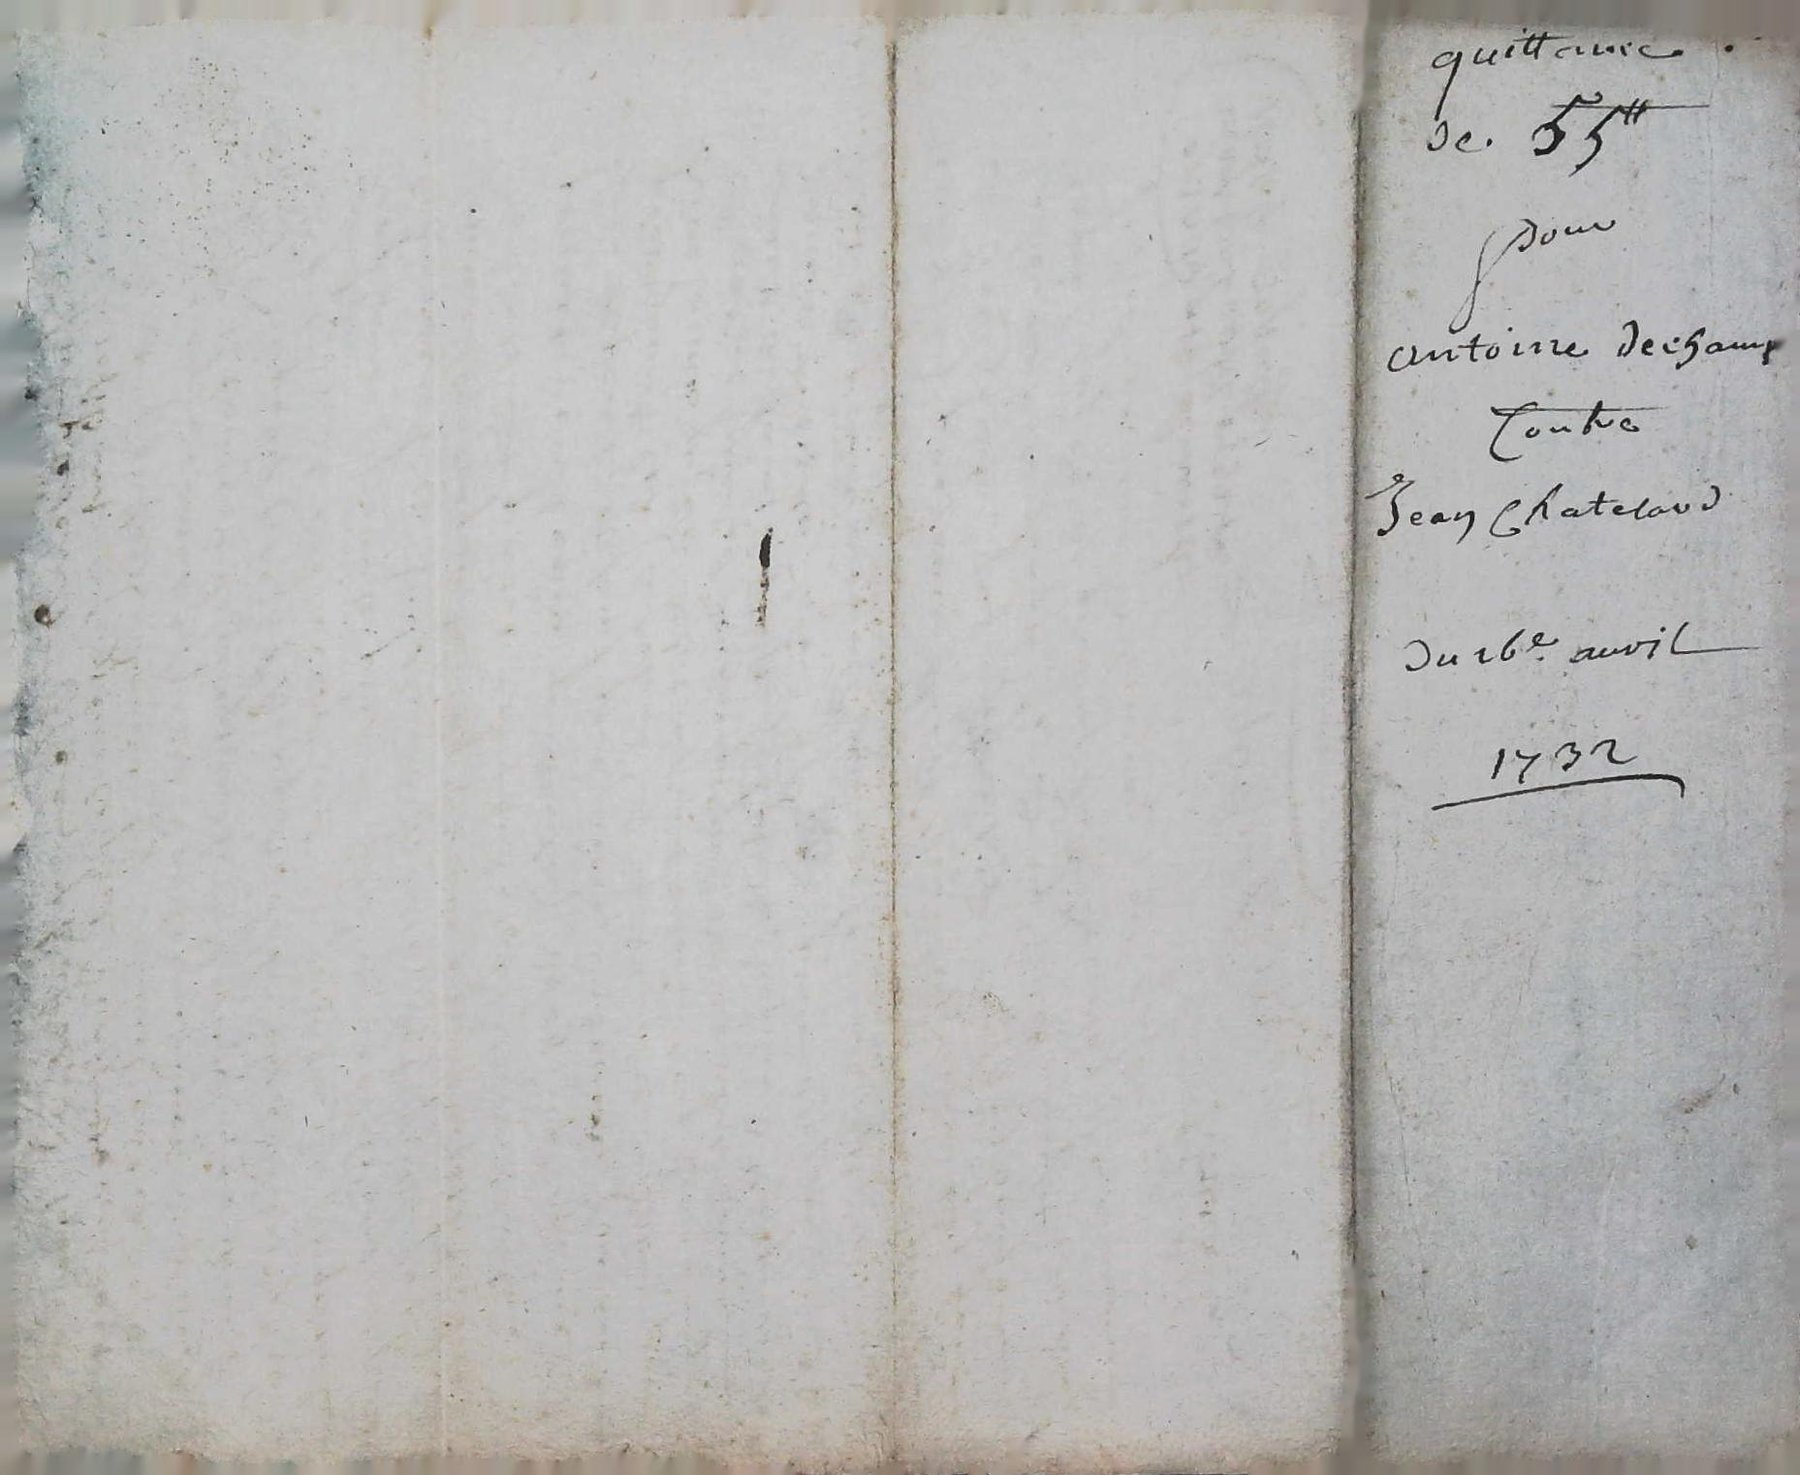 quittance
de 55ᵗᵗ
pour
antoine dechamp
Contre
Jean Chatelard
du 26ᵉ. auvil
1732